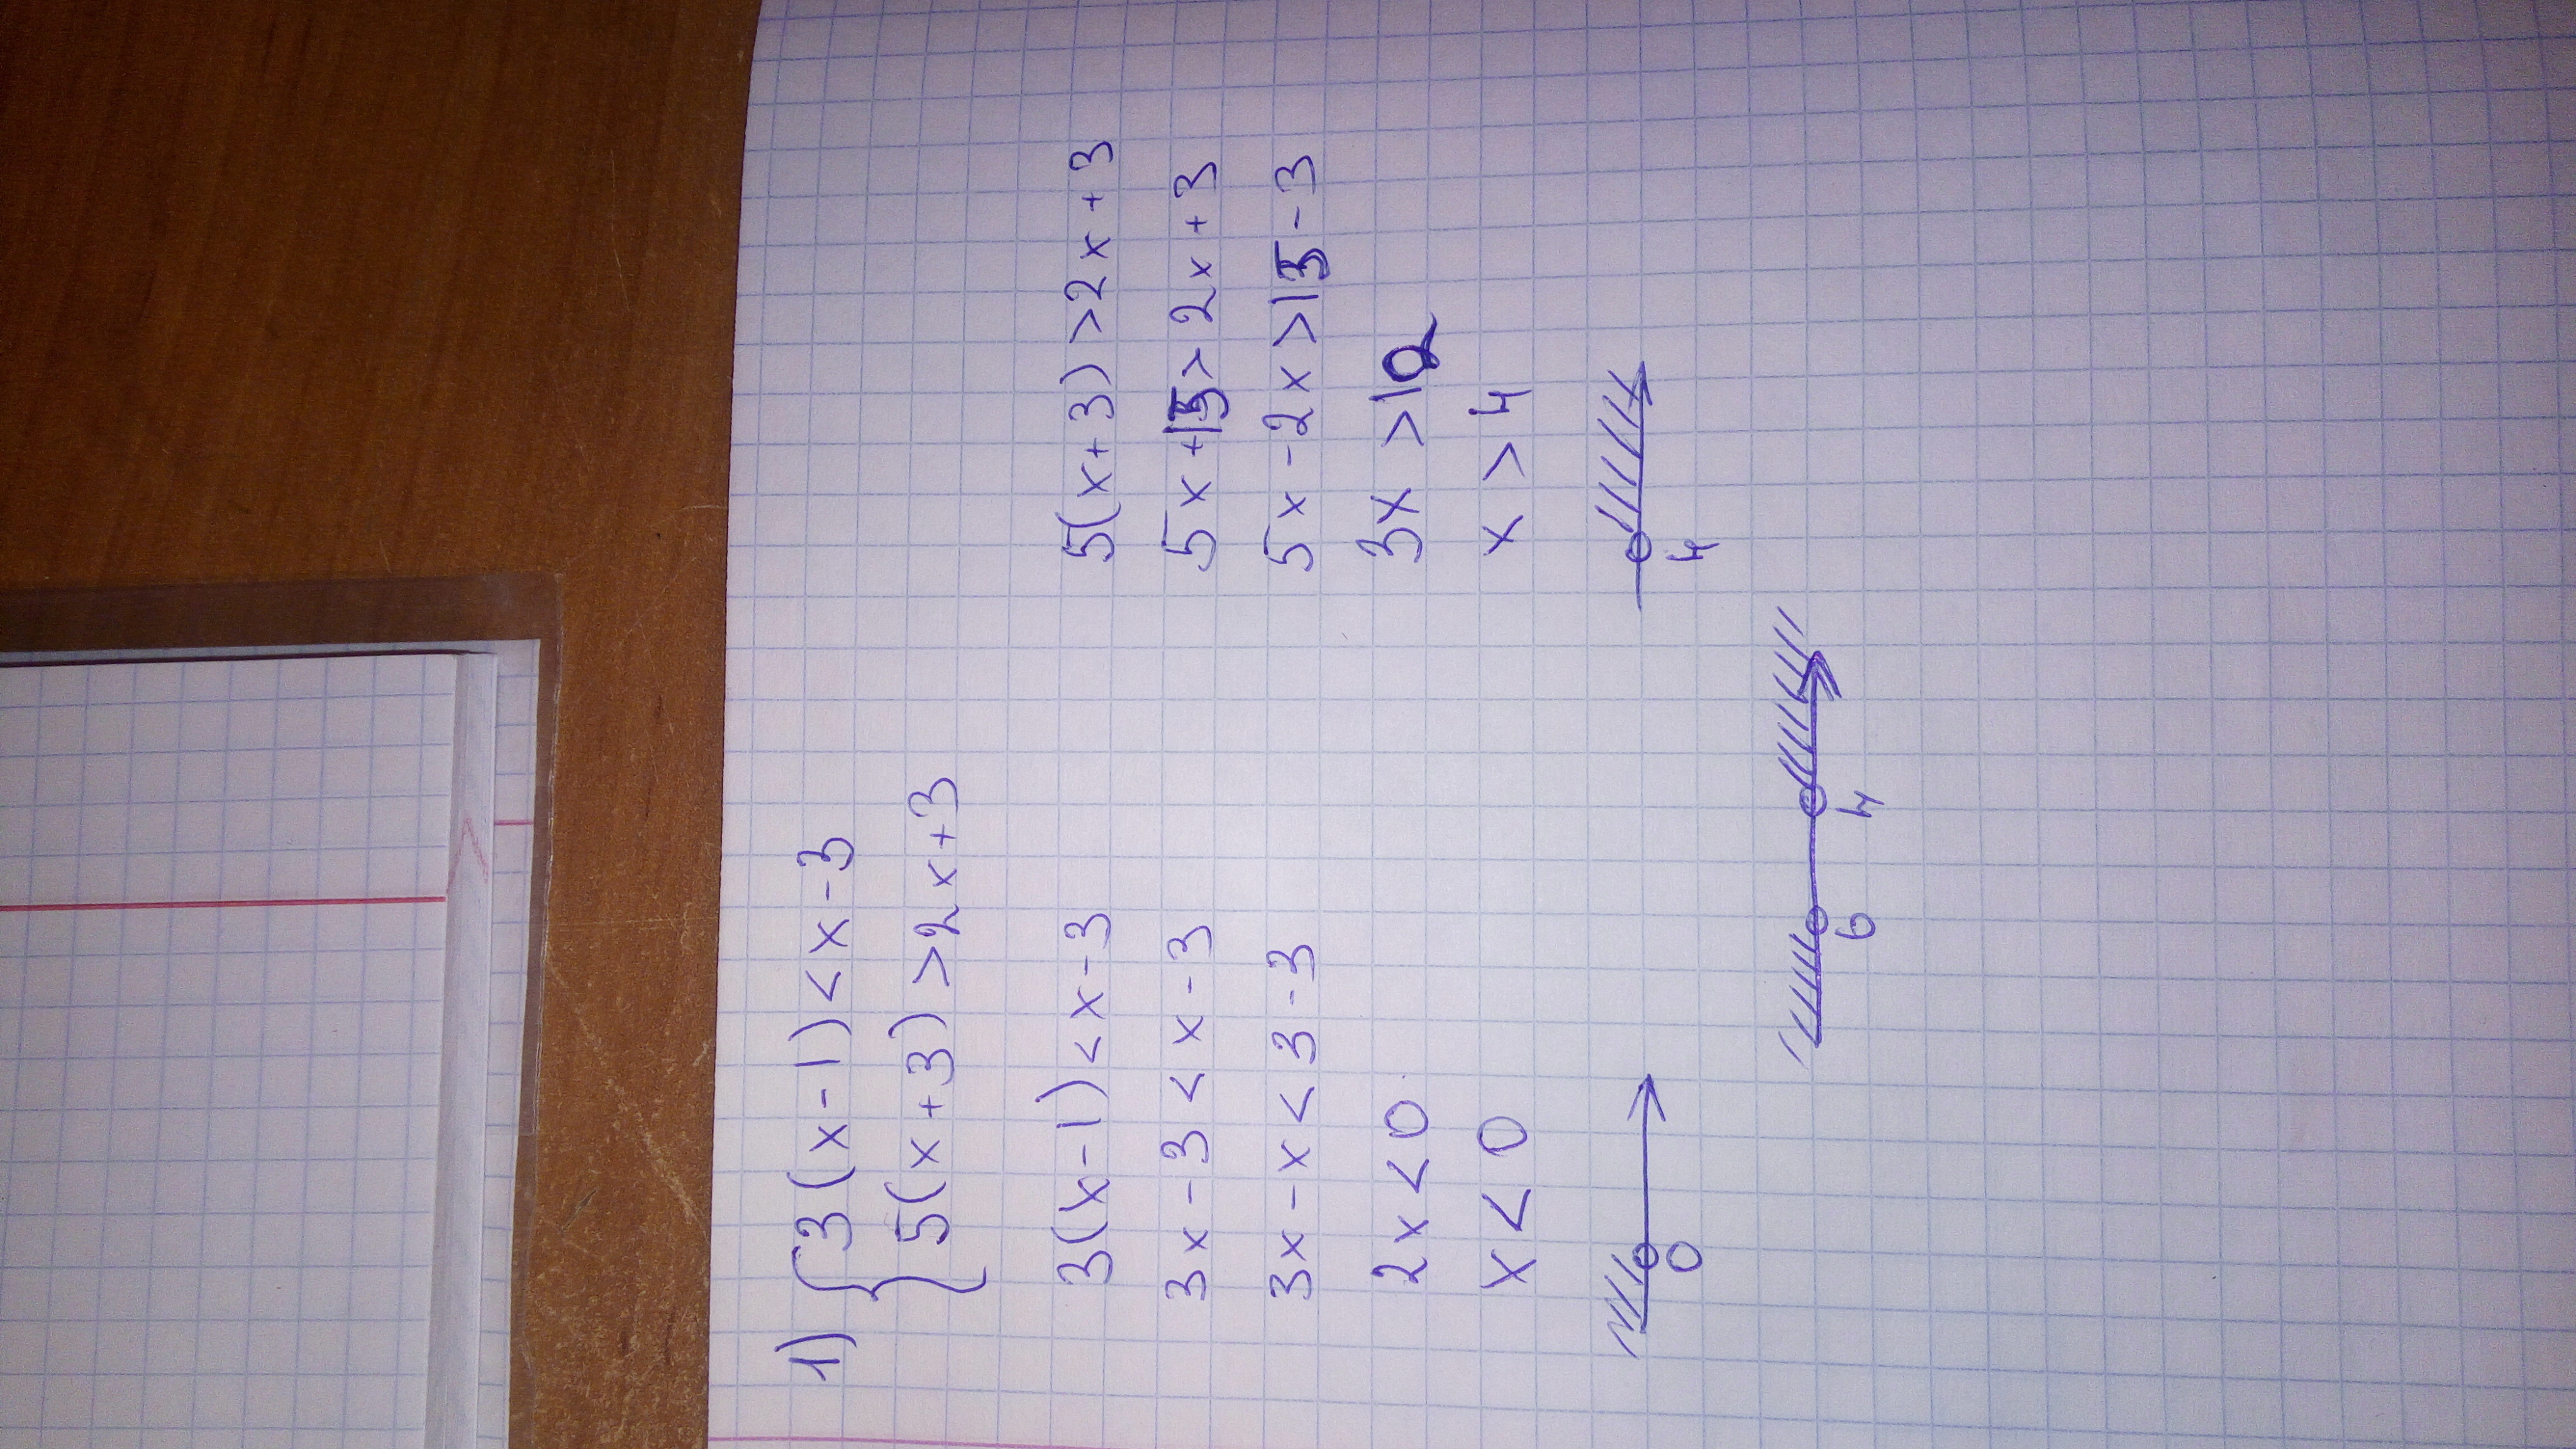 1) { 3(x-1)<x-3
5(x+3)>2x+3
3(x-1)<x-3
3x-3<x-3
3x-x<3-3
2x<0
x<0
0
5(x+3)>2x+3
5x+15>2x+3
5x-2x>15-3
3x>12
x>4
4
0 4